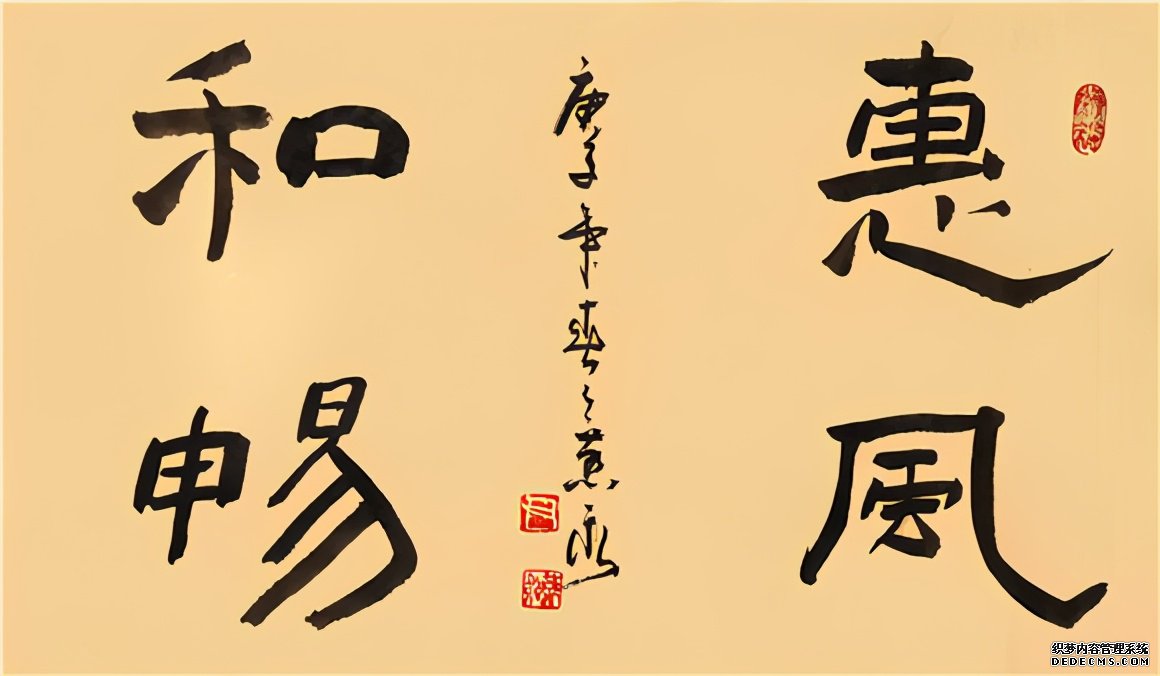 惠風
庚子年春
和暢
织梦内容管理系统
DEDECMS.COM